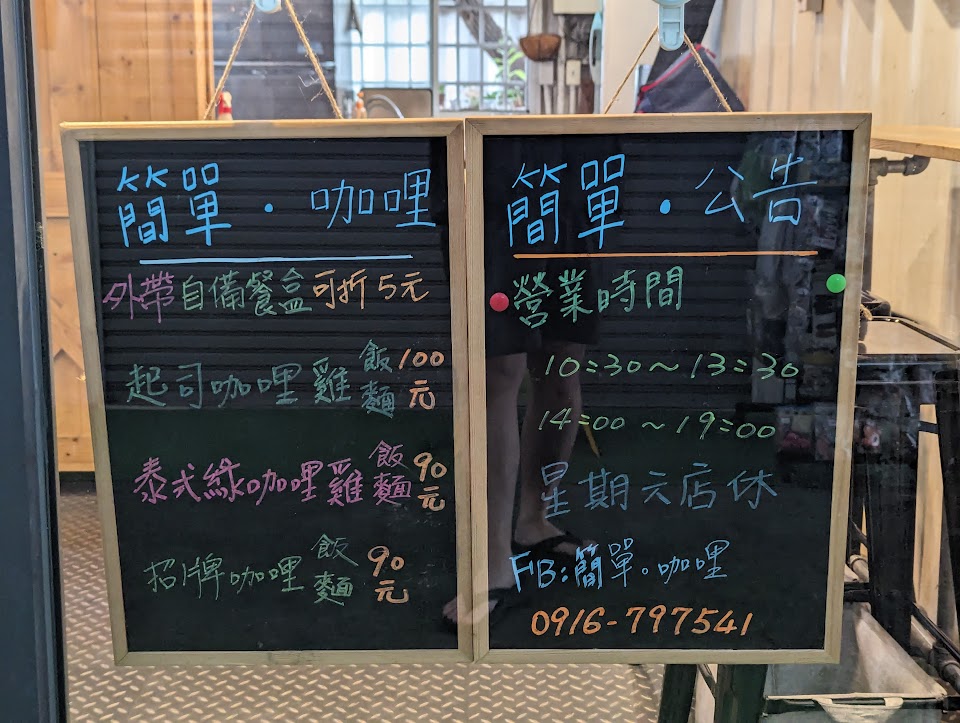 簡單・咖哩
外帶自備餐盒可折5元
起司咖哩雞飯麵100元
泰式綠咖哩雞飯麵90元
招牌咖哩飯麵90元
簡單・公告
營業時間
10:30~13:30
14:00~19:00
星期六店休
FB:簡單。咖哩
0916-797541